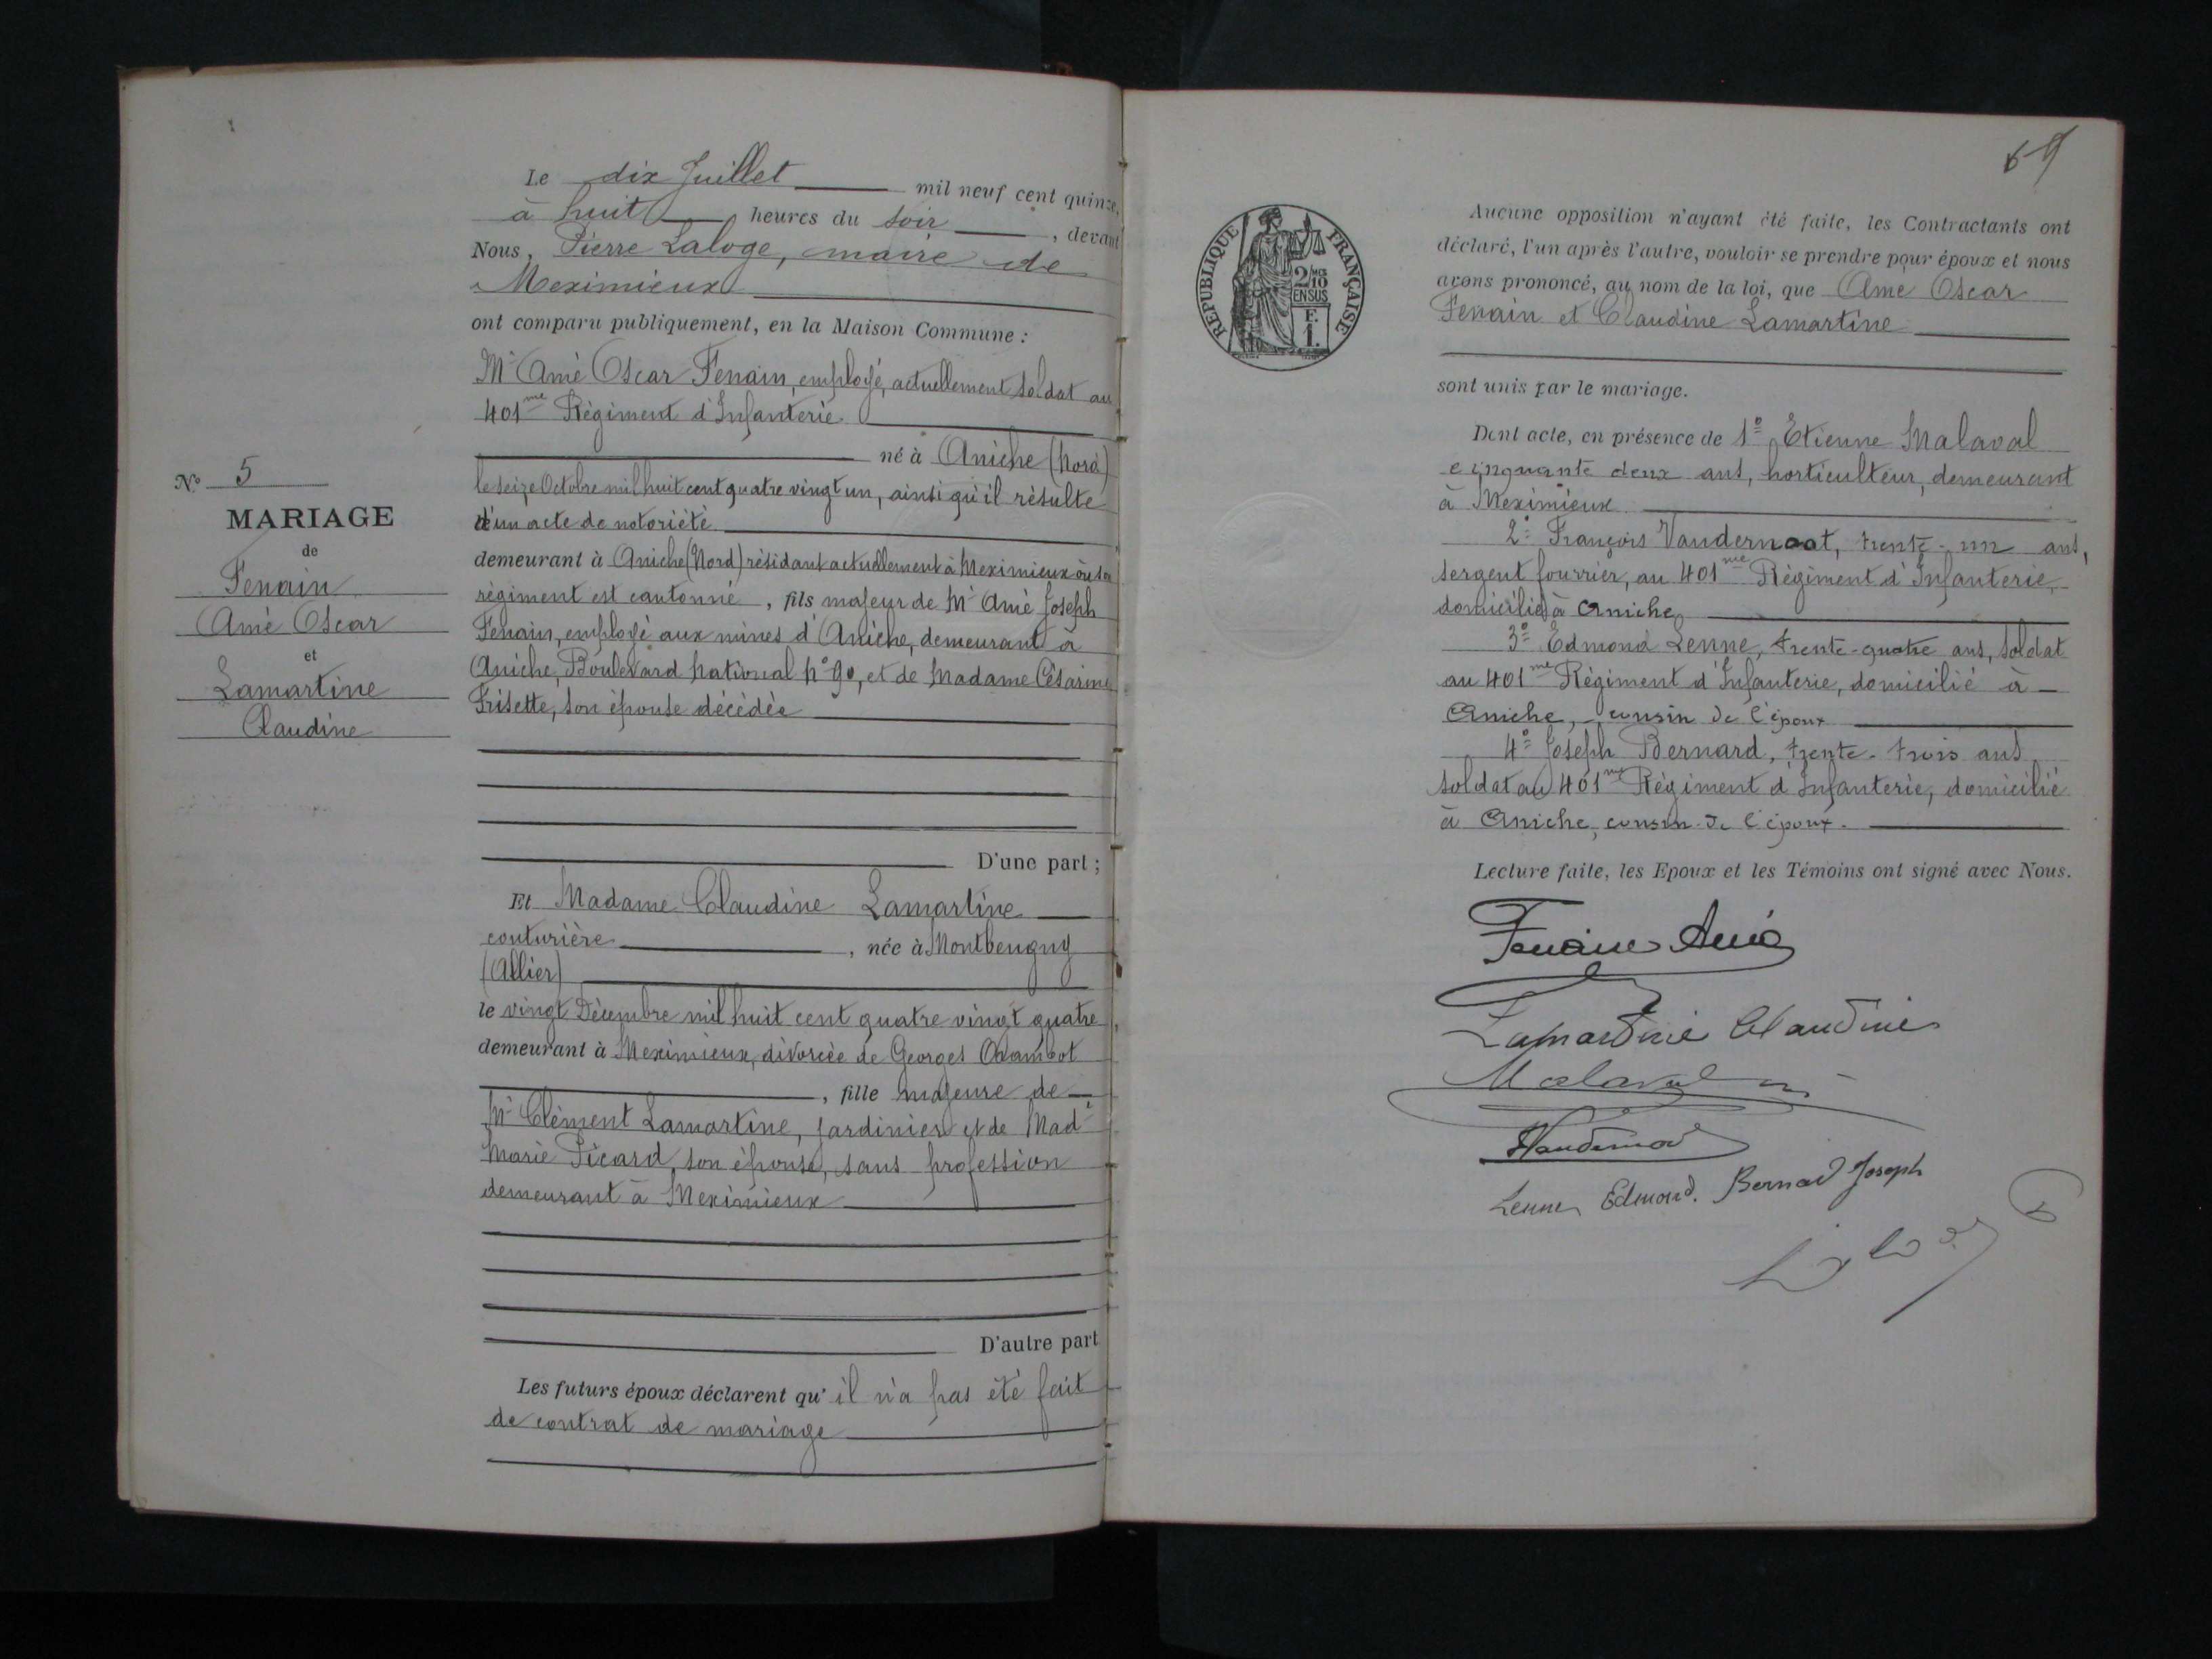 Le dix Juillet mil neuf cent quinze,
à huit heures du soir, devant
Nous, Pierre Laloge, maire de
Meximieux
ont comparu publiquement, en la Maison Commune :
Mr Amé Oscar Fenain, employé, actuellement soldat au
401me Régiment d'Infanterie
né à Aniche (Nord)
le seize Octobre mil huit cent quatre vingt un, ainsi qu'il résulte
d'un acte de notoriété
demeurant à Aniche (Nord) résidant actuellement à Meximieux où son
régiment est cantonné, fils majeur de Mr Amé Joseph
Fenain, employé aux mines d'Aniche, demeurant à
Aniche, Boulevard National No 90, et de Madame Césarine
Frisette, son épouse décédée
No 5
MARIAGE
de
Fenain
Amé Oscar
et
Lamartine
Claudine
D'une part ;
Et Madame Claudine Lamartine
couturière, née à Montbeugny
(Allier)
le vingt Décembre mil huit cent quatre vingt quatre
demeurant à Meximieux, divorcée de Georges
, fille majeure de
Mr Clément Lamartine, jardinier et de Made
Marie Picard, son épouse, sans profession
demeurant à Meximieux
D'autre part
Les futurs époux déclarent qu'il n'a pas été fait
de contrat de mariage
69
RÉPUBLIQUE FRANÇAISE
2/10
EN SUS
F.
1.
Aucune opposition n'ayant été faite, les Contractants ont
déclaré, l'un après l'autre, vouloir se prendre pour époux et nous
avons prononcé, au nom de la loi, que Amé Oscar
Fenain et Claudine Lamartine
sont unis par le mariage.
Dont acte, en présence de 1o Etienne Malaval
cinquante deux ans, horticulteur, demeurant
à Meximieux
2o François Vandernoot, trente-un ans,
sergent fourrier, au 401me Régiment d'Infanterie,
domicilié à Aniche
3o Edmond Lenne, trente-quatre ans, soldat
au 401me Régiment d'Infanterie, domicilié à
Aniche, cousin de l'époux
4o Joseph Bernard, trente-trois ans
soldat au 401me Régiment d'Infanterie, domicilié
à Aniche, cousin de l'époux.
Lecture faite, les Epoux et les Témoins ont signé avec Nous.
Fenain Amé
Lamartine Claudine
Malaval
Lenne Edmond. Bernard Joseph